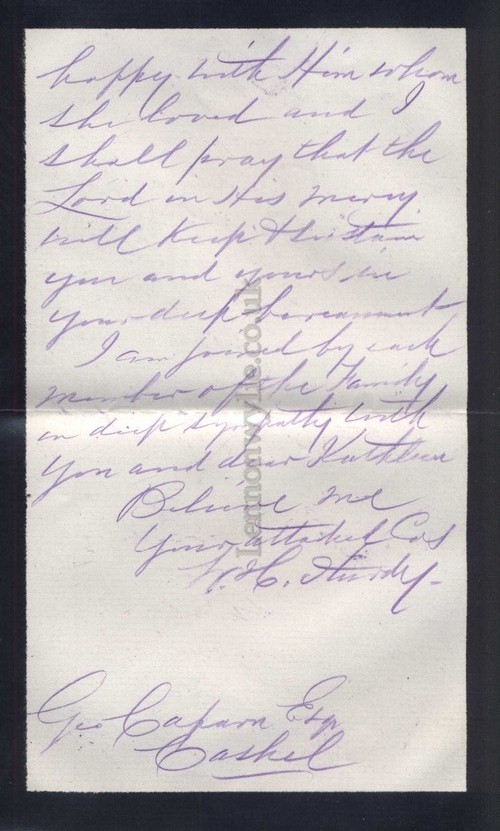 happy with Him whom
she loved and I
shall pray that the
Lord in His mercy
will keep & sustain
you and yours in
your deep bereavement
I am joined by each
member of the Family
in deep sympathy with
you and dear Kathleen
Believe me
Your attached Cos
H. Sturdy
Geo Caparn Esq
Cashel
Lennonwylie.co.uk